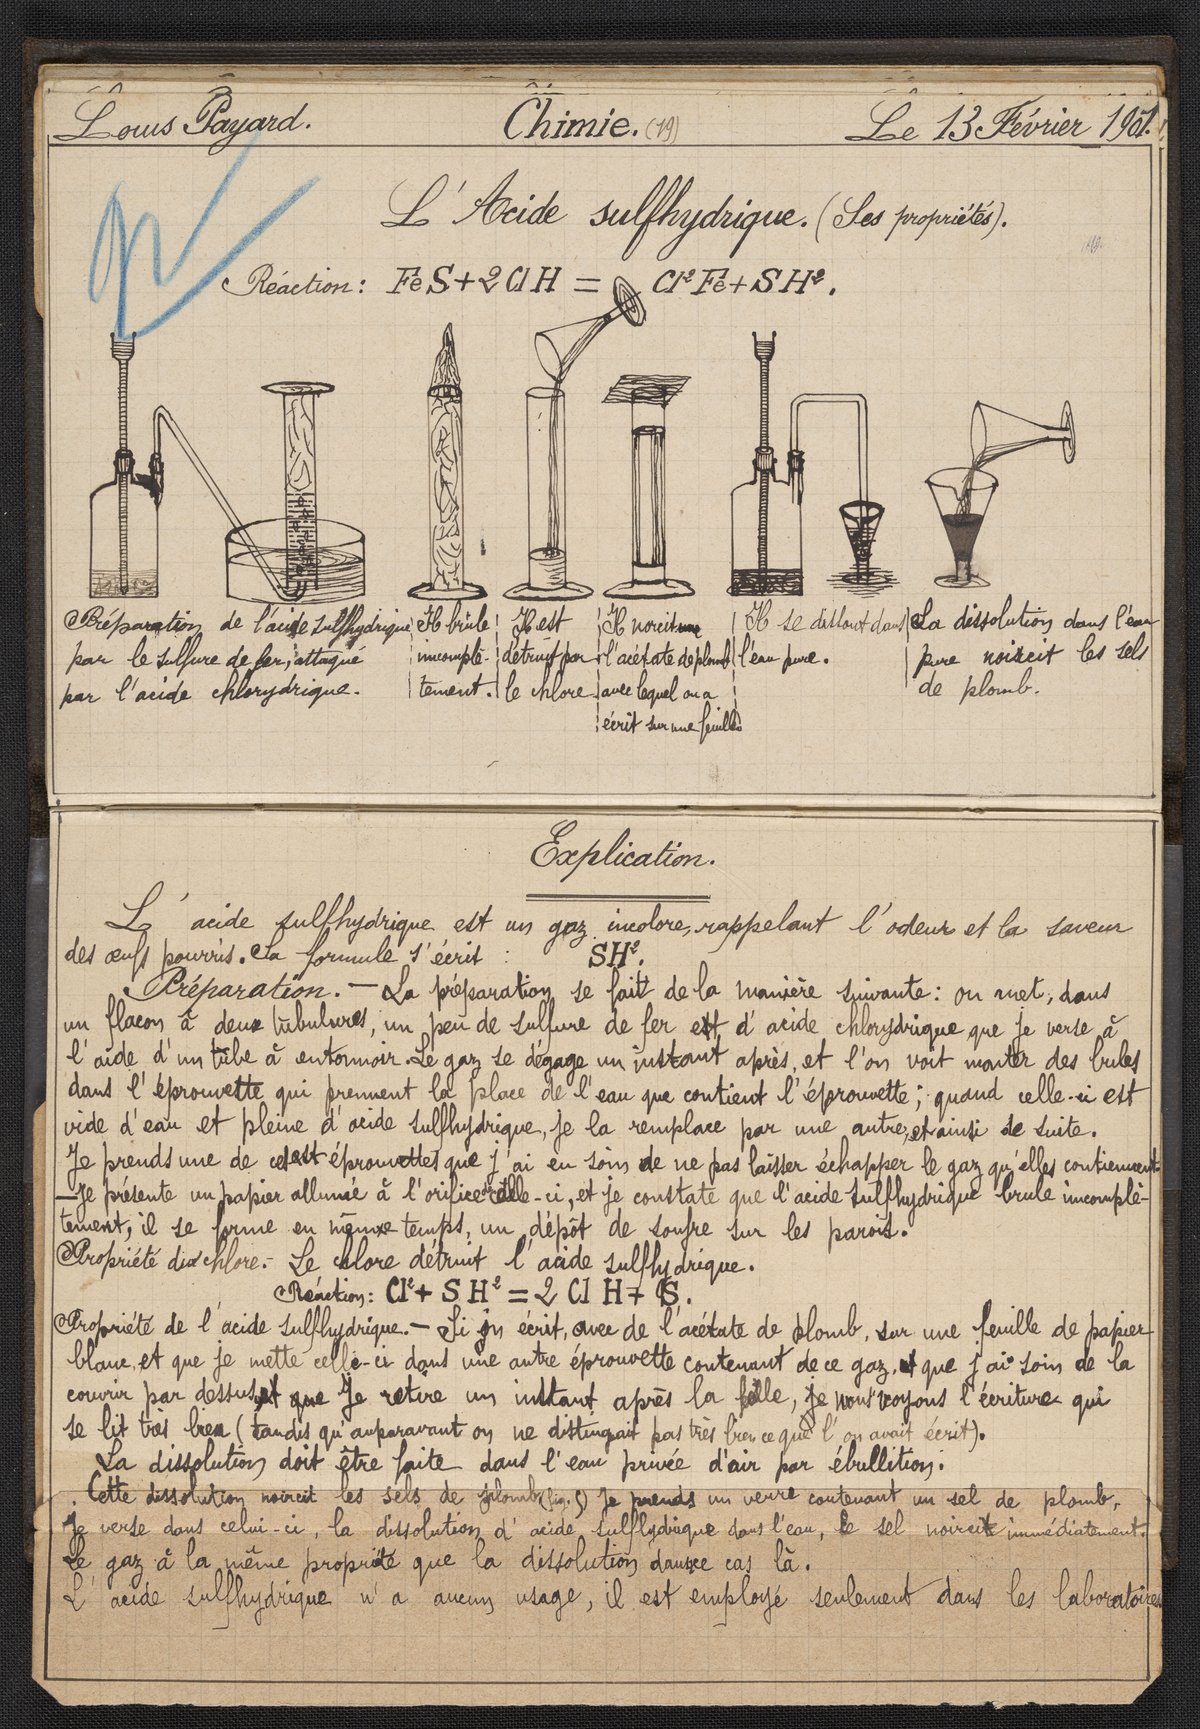 Louis Payard.
Chimie. (19)
Le 13 Février 1901.
L'Acide sulfhydrique. (Ses propriétés).
Réaction: FeS + 2 Cl H = Cl² Fe + S H².
Préparation de l'acide sulfhydrique
par le sulfure de fer, attaqué
par l'acide chlorydrique.
Il brûle
incomplè-
tement.
Il est
détruit par
le chlore
Il noircit
l'acétate de plomb
avec lequel on a
écrit sur une feuille
Il se dissout dans
l'eau pure.
La dissolution dans l'eau
pure noircit les sels
de plomb.
Explication.
L'acide sulfhydrique est un gaz incolore, rappelant l'odeur et la saveur
des œufs pourris. Sa formule s'écrit : SH².
Préparation. — La préparation se fait de la manière suivante: on met, dans
un flacon à deux tubulures, un peu de sulfure de fer et d'acide chlorydrique que je verse à
l'aide d'un tube à entonnoir. Le gaz se dégage un instant après, et l'on voit monter des bules
dans l'éprouvette qui prennent la place de l'eau que contient l'éprouvette; quand celle-ci est
vide d'eau et pleine d'acide sulfhydrique, je la remplace par une autre, et ainsi de suite.
Je prends une de ces éprouvettes que j'ai eu soin de ne pas laisser échapper le gaz qu'elles contiennent
— Je présente un papier allumé à l'orifice de celle-ci, et je constate que l'acide sulfhydrique brule incomplè-
tement, il se forme en même temps, un dépôt de soufre sur les parois.
Propriété du chlore. - Le chlore détruit l'acide sulfhydrique.
Réaction: Cl² + S H² = 2 Cl H + S.
Propriété de l'acide sulfhydrique. — Si j'en écrit, avec de l'acétate de plomb, sur une feuille de papier
blanc, et que je mette celle-ci dans une autre éprouvette contenant de ce gaz, et que j'ai soin de la
couvrir par dessus, et que je retire un instant après la feuille, je nous voyons l'écriture qui
se lit très bien (tandis qu'auparavant on ne distinguait pas très bien ce que l'on avait écrit).
La dissolution doit être faite dans l'eau privée d'air par ébullition.
Cette dissolution noircit les sels de plomb (fig. ) Je prends un verre contenant un sel de plomb,
Je verse dans celui-ci, la dissolution d'acide sulfhydrique dans l'eau, le sel noircit immédiatement.
Le gaz à la même propriété que la dissolution dans ce cas là.
L'acide sulfhydrique n'a aucun usage, il est employé seulement dans les laboratoires